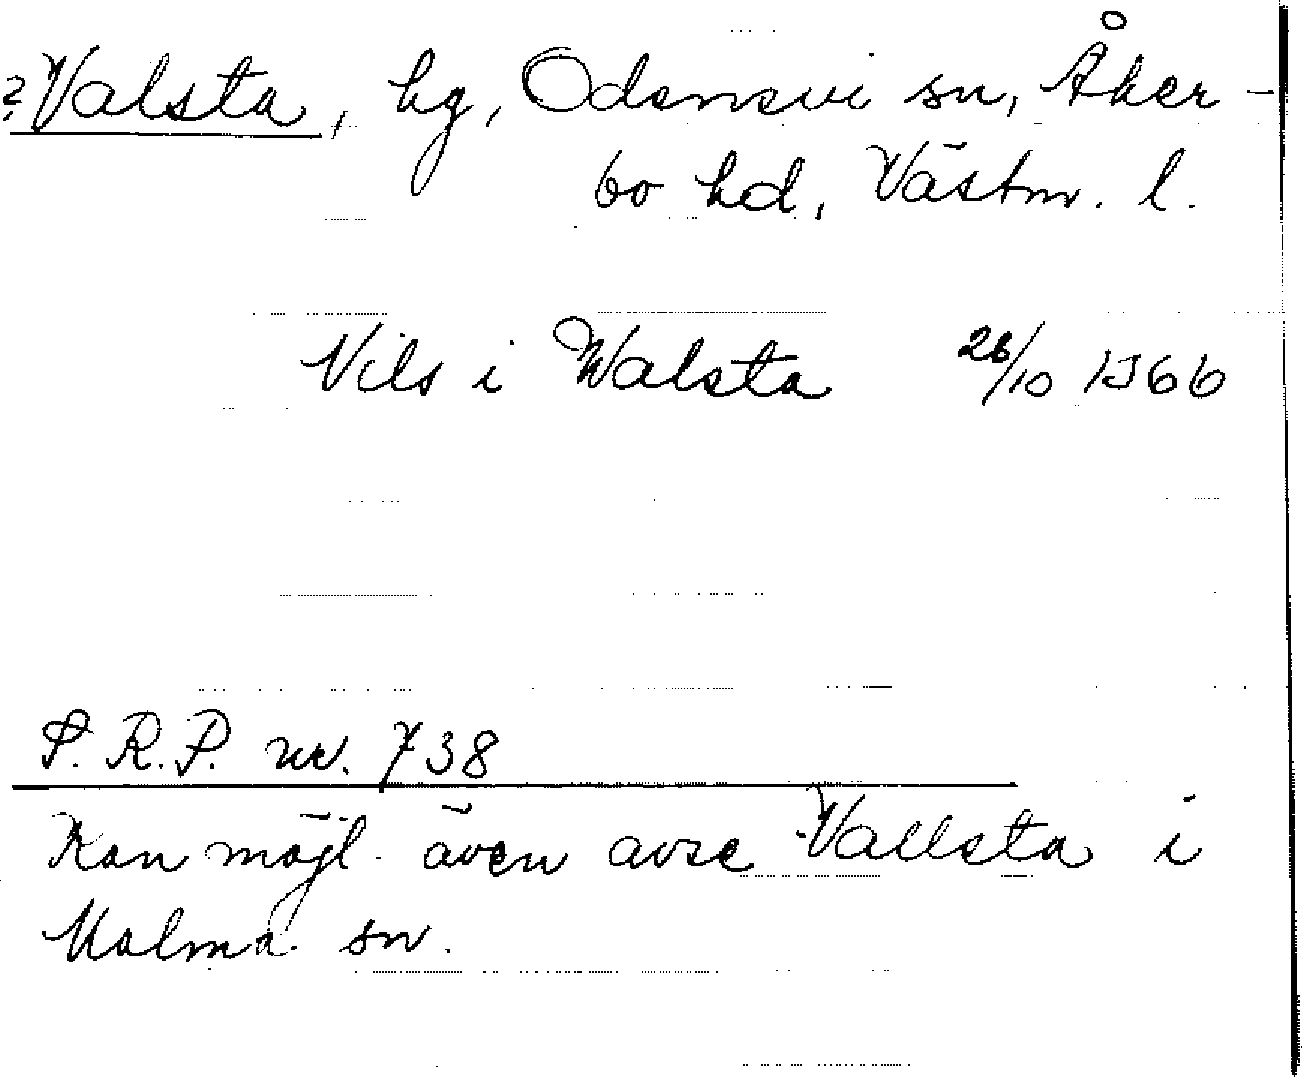 ? Valsta, hg, Odensvi sn, Åker-
bo hd, Västm. l.
Nils i Walsta 26/10 1366
S.R.P. nr. 738
Kan möjl. även avse Vallsta i
Malma sn.